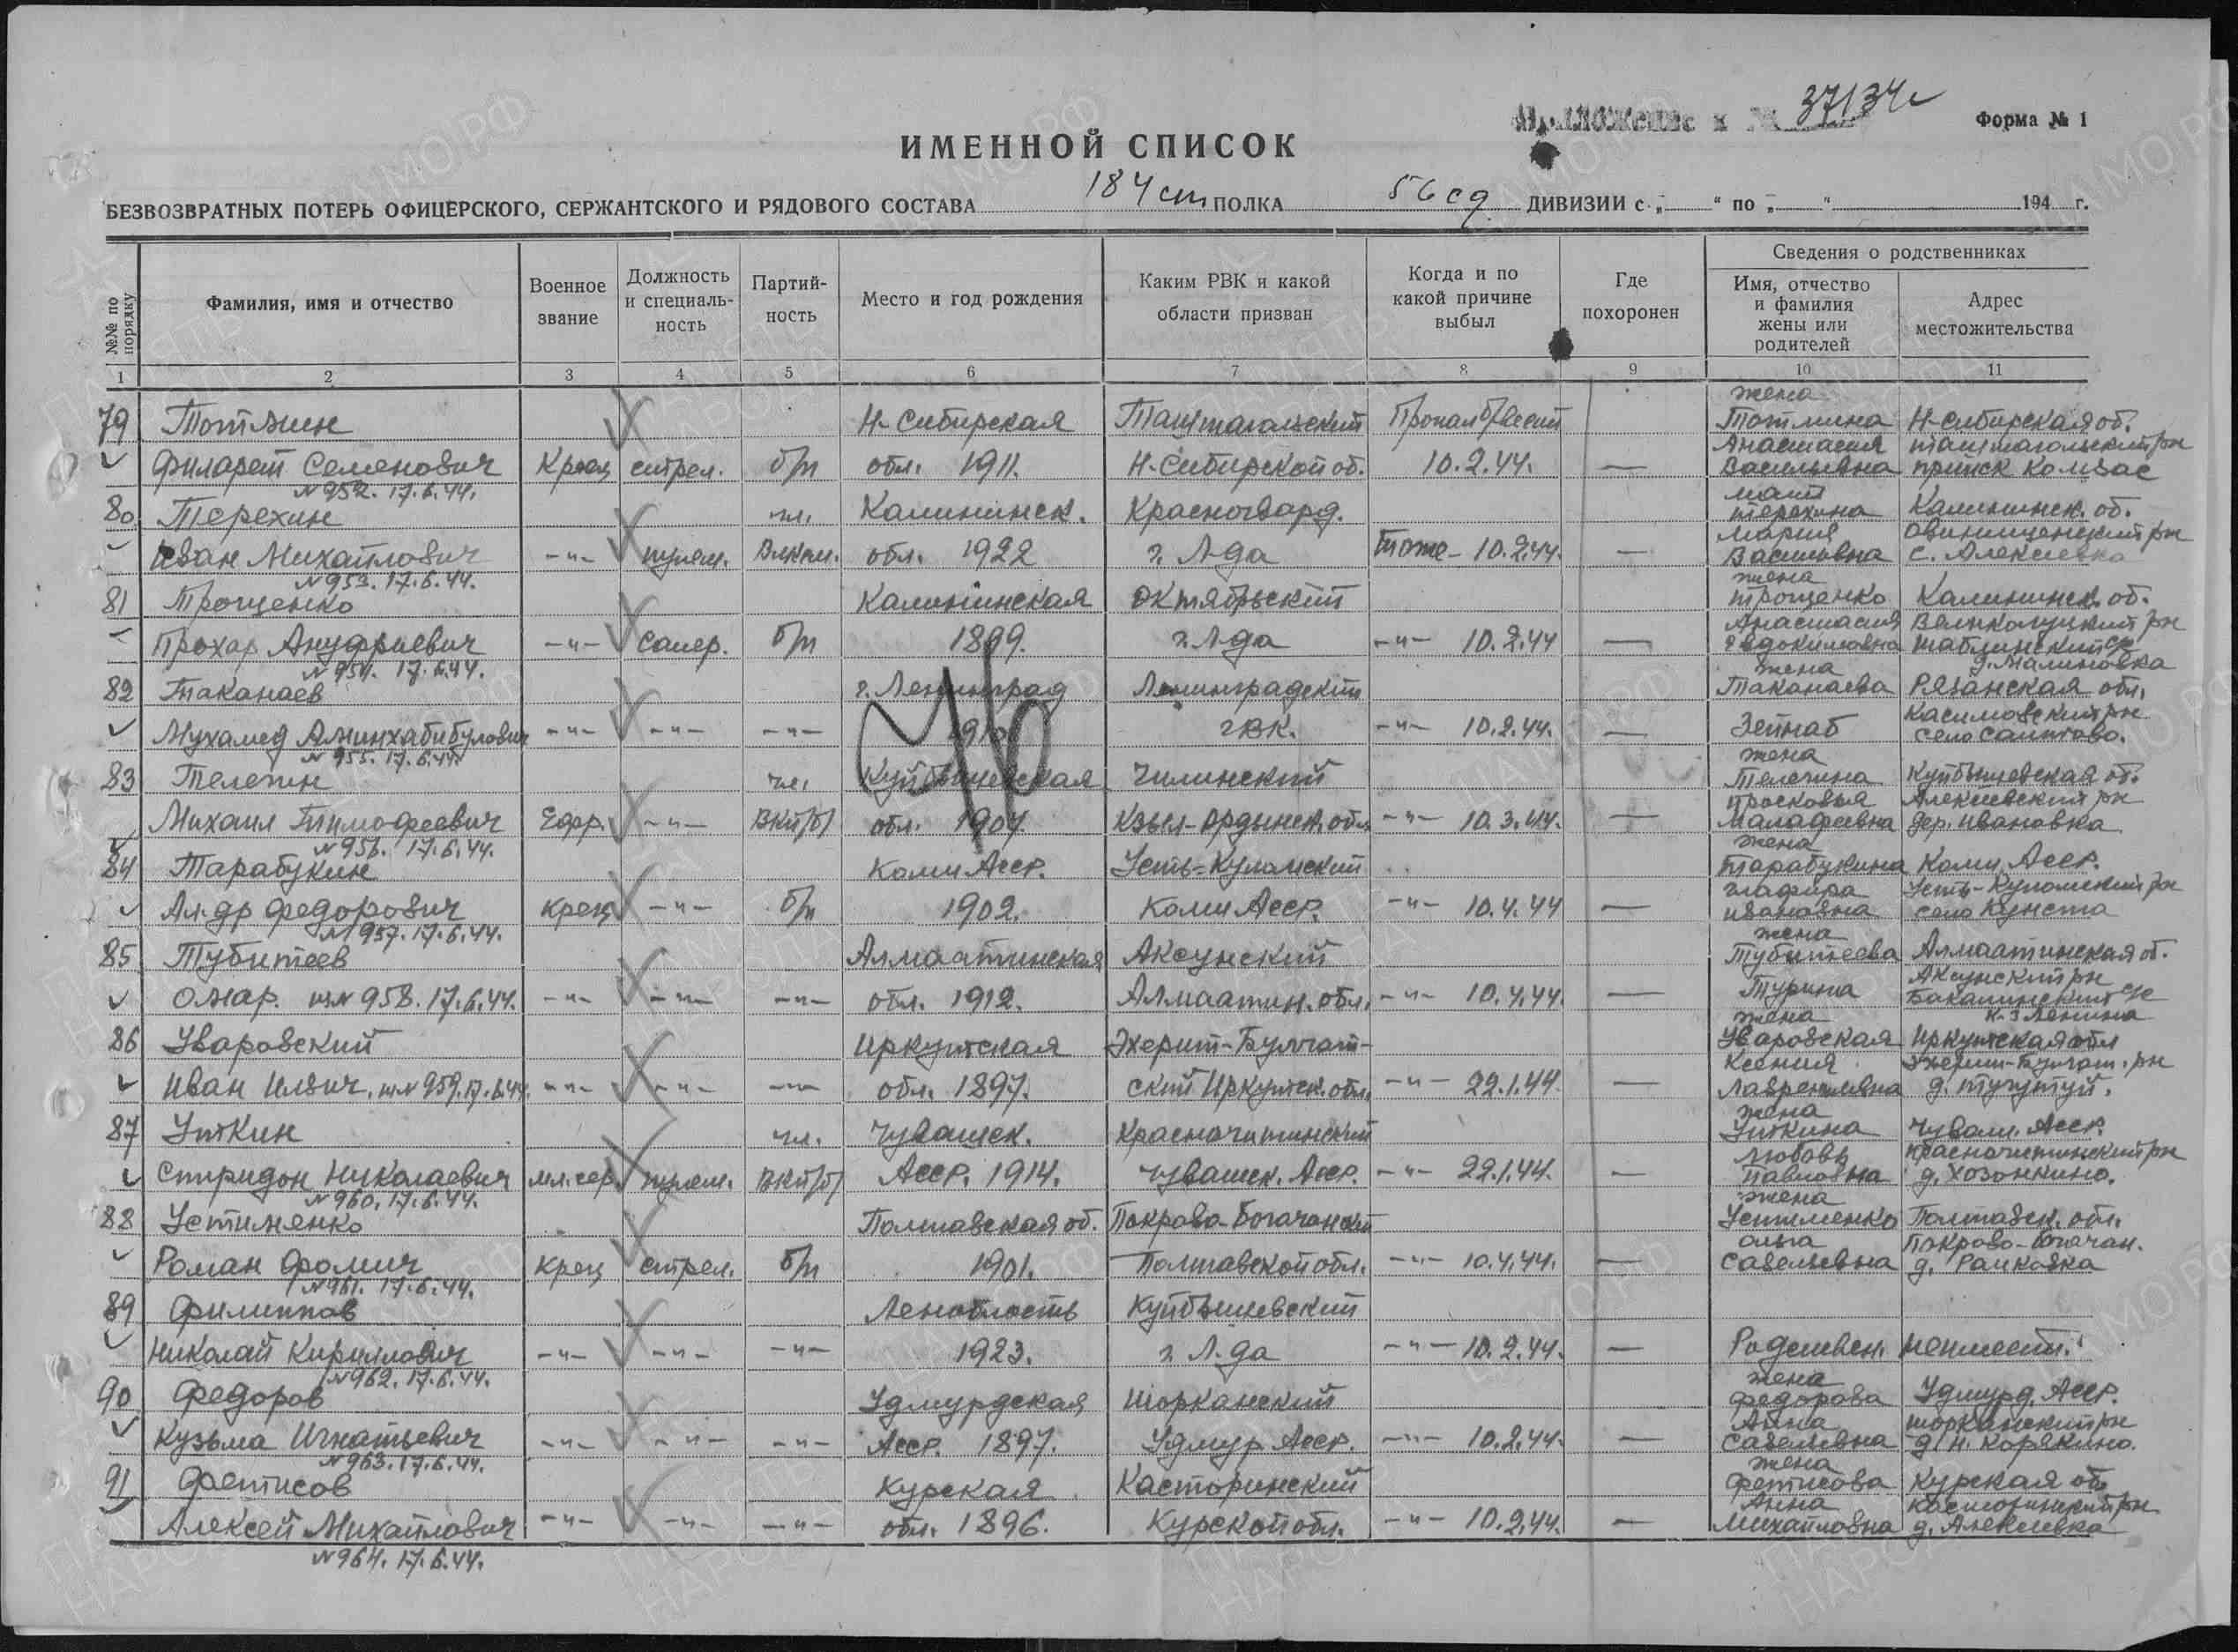 Приложение к № 37134с
Форма № 1
ИМЕННОЙ СПИСОК
БЕЗВОЗВРАТНЫХ ПОТЕРЬ ОФИЦЕРСКОГО, СЕРЖАНТСКОГО И РЯДОВОГО СОСТАВА 184 сп ПОЛКА 56 сд ДИВИЗИИ с „ “ по „ “ 194 г.
№№ по порядку
Фамилия, имя и отчество
Военное звание
Должность и специаль-ность
Партий-ность
Место и год рождения
Каким РВК и какой области призван
Когда и по какой причине выбыл
Где похоронен
Сведения о родственниках
Имя, отчество и фамилия жены или родителей
Адрес местожительства
1 2 3 4 5 6 7 8 9 10 11
жена
79 Тотмин Н-Сибирская Таштагольский Пропал б/вести Тотмина Н-Сибирская об.
Анастасия таштагольский рн
Филарет Семенович Кр-ец стрел. б/п обл. 1911. Н-Сибирской об. 10.2.44. — Васильевна прииск Камзас
№952. 17.6.44.
мать
80 Терехин чл. Калининск. Красногвард. терехина Калининск. об.
Мария Овинищенский рн
Иван Михайлович -"- пулем. Влксм. обл. 1922 г. Л-да Тоже - 10.2.44. — Васильевна с. Алексеевка
№953. 17.6.44.
жена
81 Трощенко Калининская Октябрьский трощенко Калининск. об.
Анастасия Великолукский рн
Прохар Ануфриевич -"- Сапер. б/п 1899. г. Л-да -"- 10.2.44 — Евдокимовна
№954. 17.6.44.
д. Малиновка
жена
82 Таканаев г. Ленинград Ленинградский Таканаева Рязанская обл.
Касимовский рн
Мухамед Аминхабибулович -"- -"- -"- ГВК. -"- 10.2.44. — Зейнаб село
№955. 17.6.44.
жена
83 Телегин чл. Куйбышевская Чилинский Телегина Куйбышевская об.
просковья Алексеевский рн
Михаил Тимофеевич Ефр. -"- ВКП/б/ обл. 1907. Кзыл-Ордынск. обл. -"- 10.3.44. — Малафеевна дер. Ивановка
№956. 17.6.44.
жена
84 Тарабукин Коми Асср. Усть-Куломский Тарабукина Коми Асср.
глафира Усть-Куломский рн
Ал-др Федорович крец -"- б/п 1902. Коми Асср. -"- 10.4.44 — ивановна село
№957. 17.6.44.
жена
85 Тубитеев Алмаатинская Аксуиский Тубитеева Алмаатинская об.
Аксуиский рн
Омар. №958. 17.6.44. -"- -"- -"- обл. 1912. Алмаатин. обл. -"- 10.4.44. — Турина
к-з Ленина
жена
86 Уваровский Иркутская Эхерит-Булгат- Уваровская Иркутская обл
Ксения Эхерит-Булгат. рн
Иван Ильич. №959. 17.6.44 -"- -"- -"- обл. 1897. ский Иркутск. обл. -"- 22.1.44. — Лаврентьевна д. тугутуй.
жена
87 Уткин чл. Чувашск. Красночитинский Уткина Чуваш. Асср.
Любовь Красночитинский рн
Спиридон Николаевич мл. сер. пулем. ВКП/б/ Асср. 1914. Чувашск. Асср. -"- 22.1.44. — Павловна д. Хозонкино.
№960. 17.6.44.
жена
88 Устименко Полтавская об. Покрово-Богачанский Устименко Полтавск. обл.
ольга Покрово-богачан.
Роман Фомич крец стрел. б/п 1901. Полтавской обл. -"- 10.4.44. — Савельевна д. Рачковка
№961. 17.6.44.
89 Филиппов Ленобласть Куйбышевский
Николай Кириллович -"- -"- -"- 1923. г. Л-да -"- 10.2.44. — Родствен. неимеет.
№962. 17.6.44.
жена
90 Федоров Удмурдская Шорканский федорова Удмурд. Асср.
Анна шорканский рн
Кузьма Игнатьевич -"- -"- -"- Асср. 1897. Удмур Асср. -"- 10.2.44. — Савельевна д. Н. Корякино.
№963. 17.6.44.
жена
91 Фетисов Курская Касторинский фетисова Курская об.
Анна касторинский рн
Алексей Михайлович -"- -"- -"- обл. 1896. Курской обл. -"- 10.2.44. — Михайловна д. Алексеевка
№964. 17.6.44.